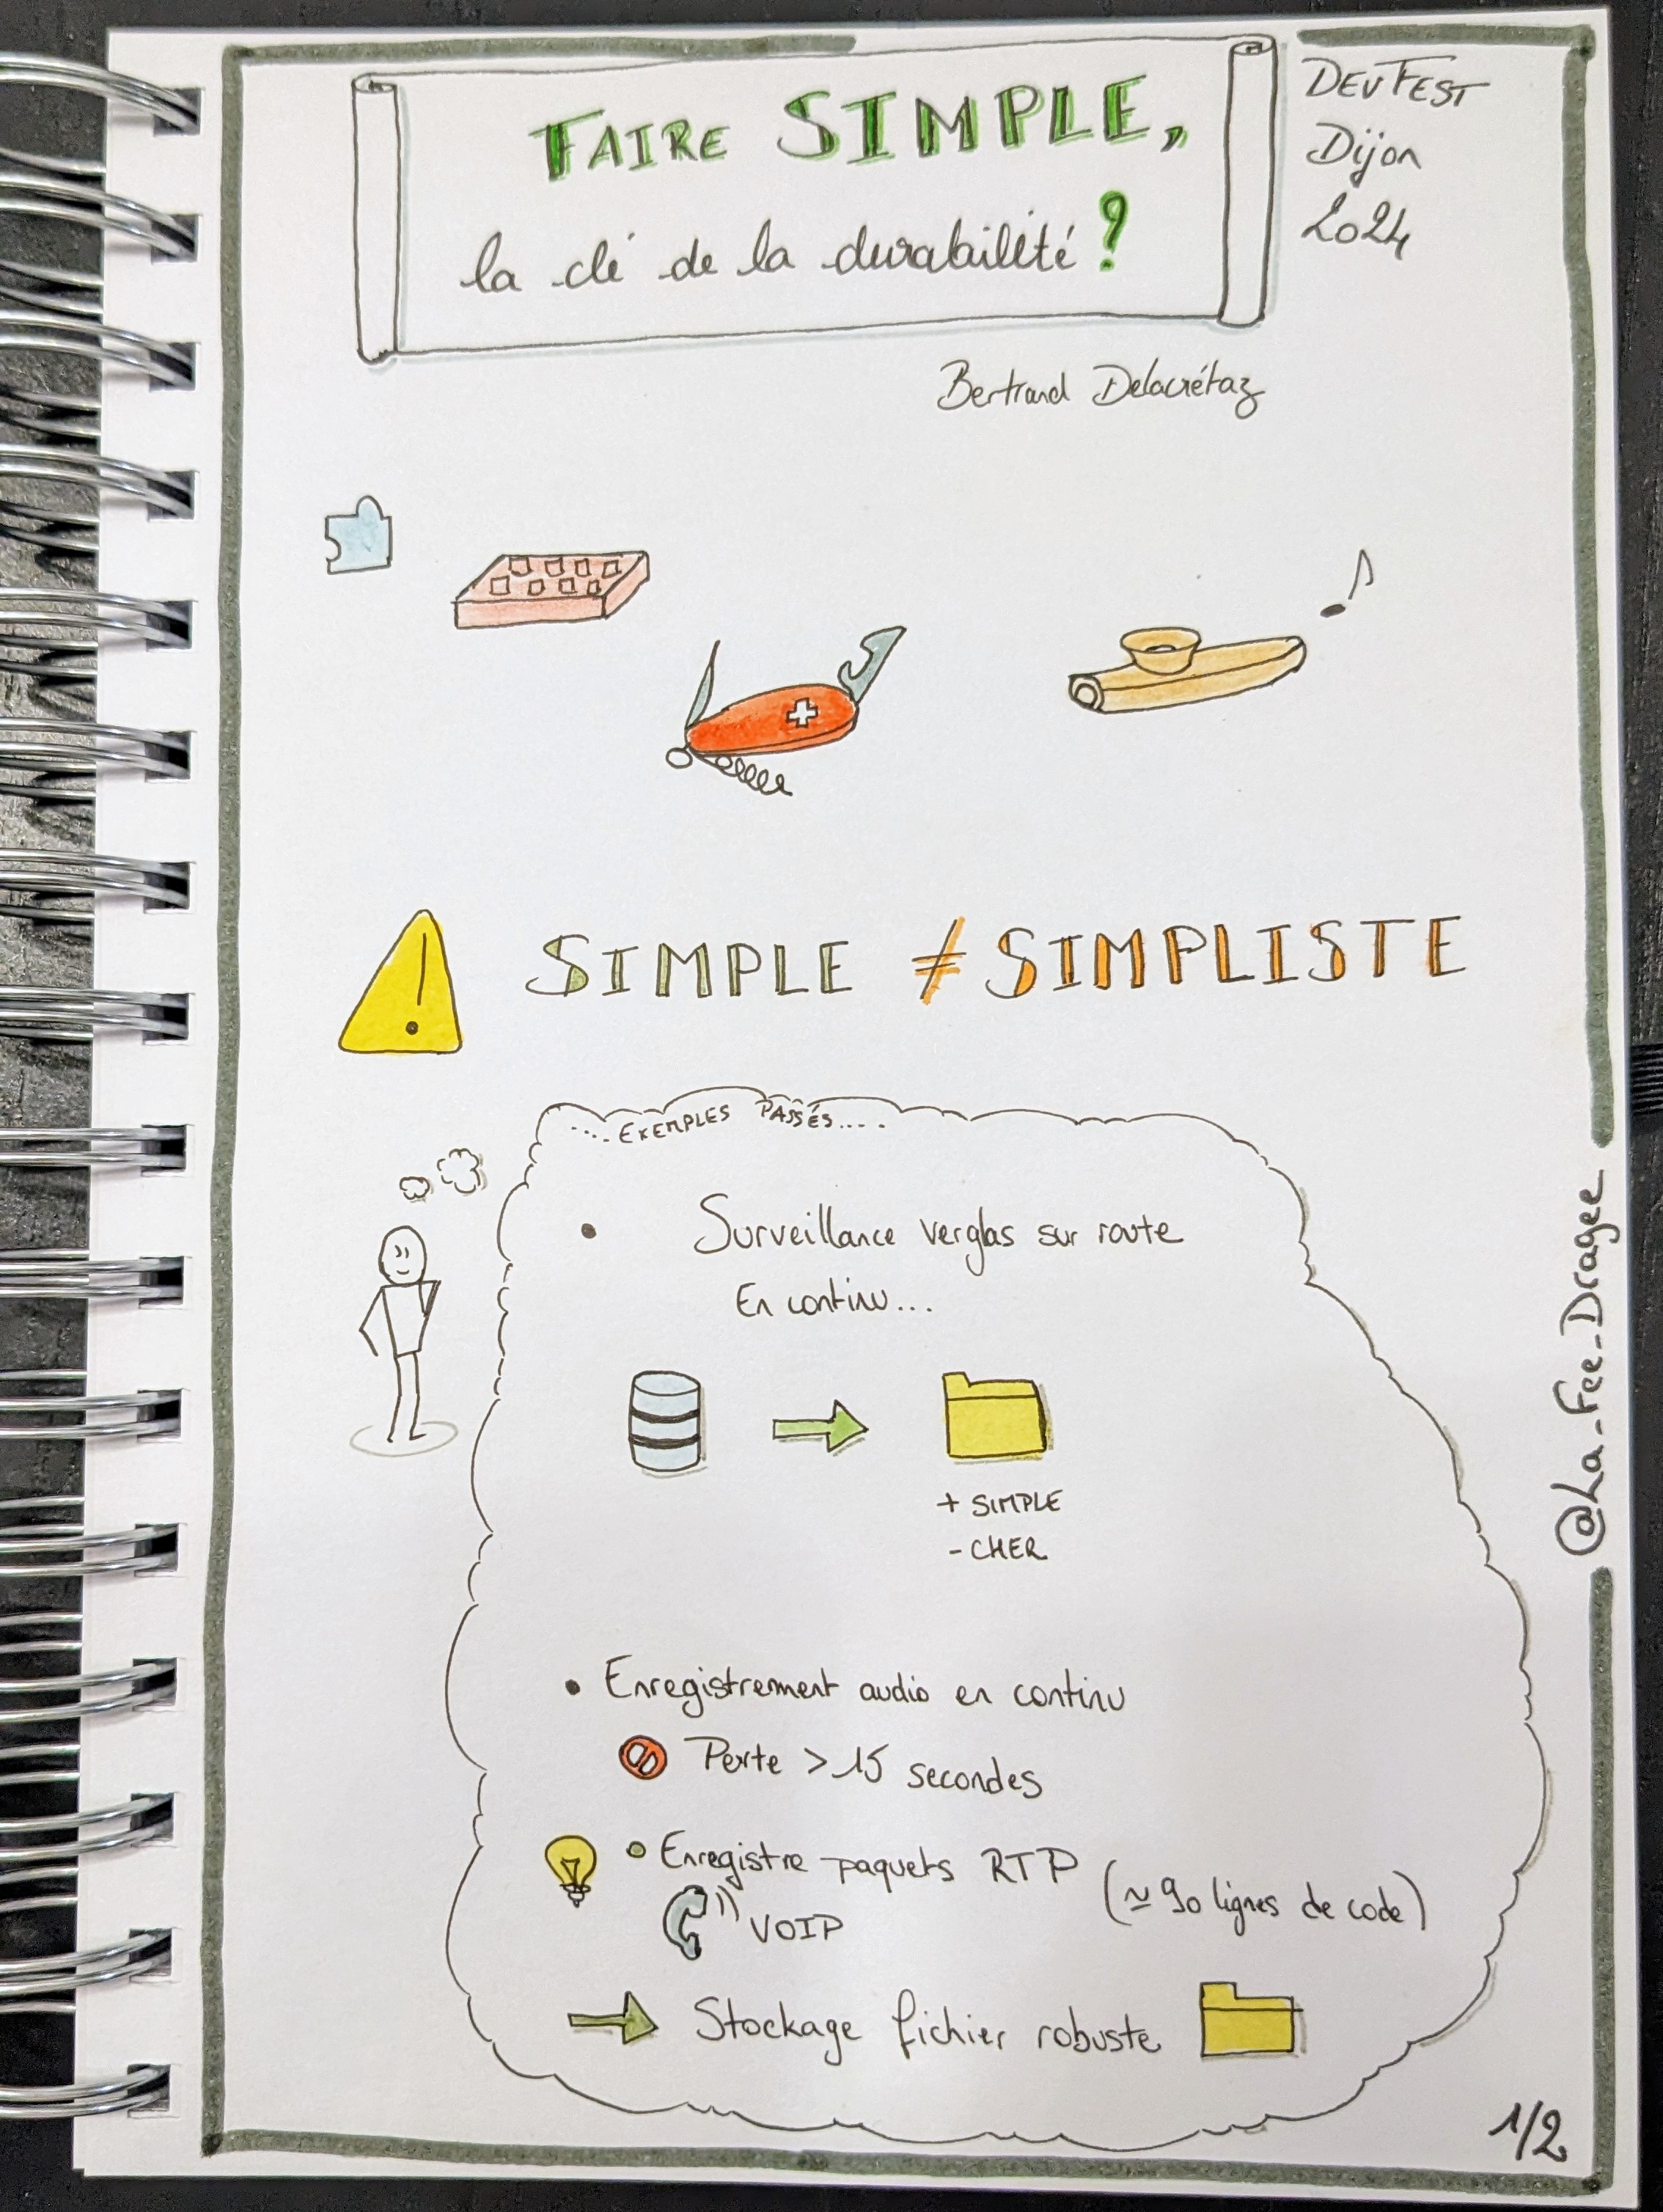 FAIRE SIMPLE,
la clé de la durabilité ?
DEVFEST
Dijon
2024
Bertrand Delacrétaz
SIMPLE ≠ SIMPLISTE
.... EXEMPLES PASSÉS....
• Surveillance verglas sur route
En continu...
+ SIMPLE
- CHER
• Enregistrement audio en continu
Perte > 15 secondes
• Enregistre paquets RTP (≃ 90 lignes de code)
VOIP
Stockage fichier robuste
@La_Fee_Dragee
1/2